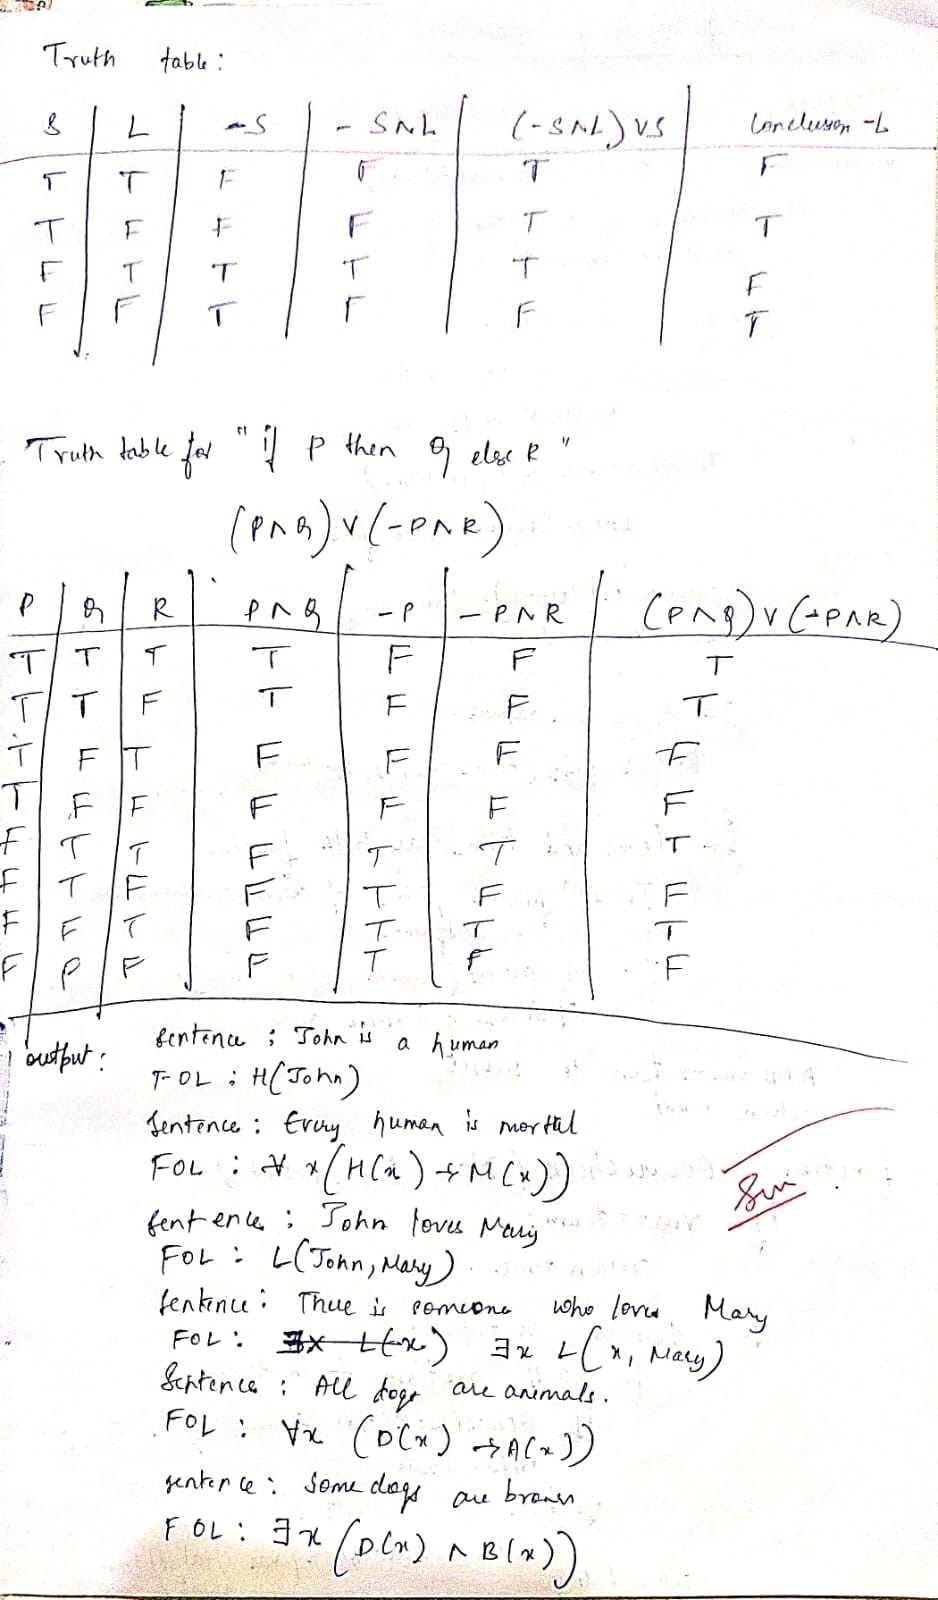 Truth table:
S L -S -S∧L (-S∧L)∨S Conclusion -L
T T F F T F
T F F F T T
F T T T T F
F F T F F T
Truth table for "if P then Q else R"
(P∧Q)∨(-P∧R)
P Q R P∧Q -P -P∧R (P∧Q)∨(-P∧R)
T T T T F F T
T T F T F F T
T F T F F F F
T F F F F F F
F T T F T T T
F T F F T F F
F F T F T T T
F P F F T F F
output:
Sentence : John is a human
FOL : H(John)
Sentence : Every human is mortal
FOL : ∀x(H(x)→M(x))
Sentence : John loves Mary
FOL : L(John, Mary)
Sentence : There is someone who loves Mary
FOL : ∃x L(x) ∃x L(x, Mary)
Sentence : All dogs are animals.
FOL : ∀x (D(x)→A(x))
Sentence : Some dogs are brown
FOL : ∃x (D(x) ∧ B(x))